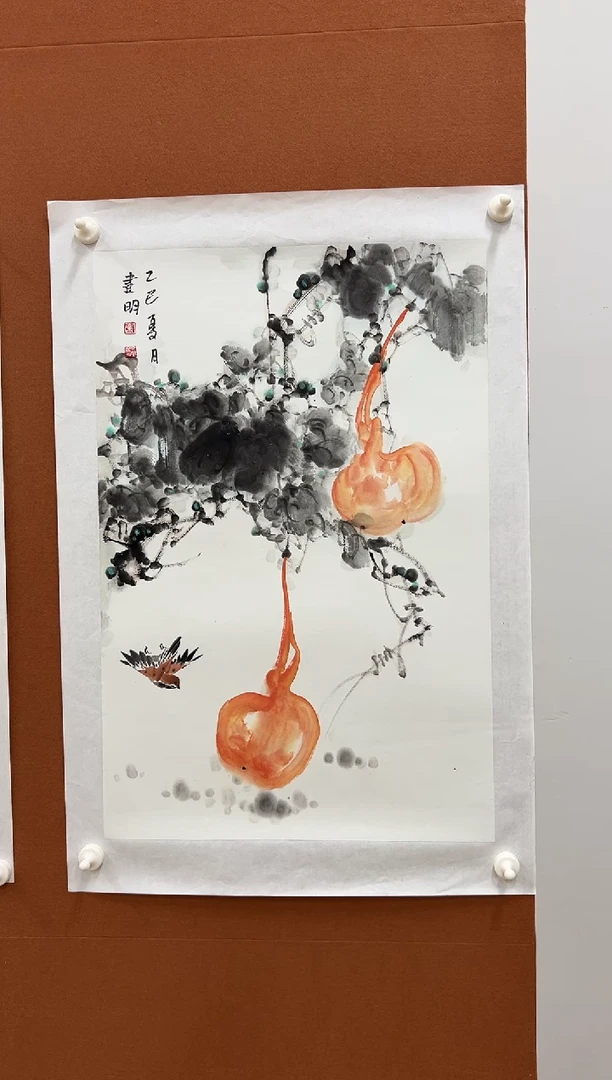 乙巳夏月
明